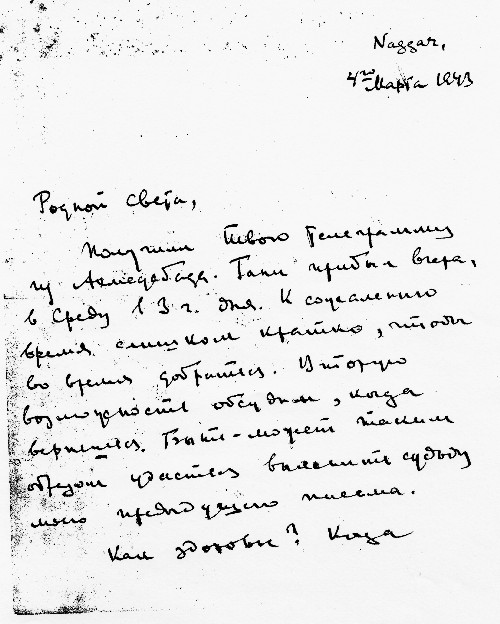 Naggar,
4го Марта 1943
Родной Света,
Получил твою телеграмму
из Ахмедабада. Гани прибыл вчера,
в Среду в 3 ч. дня. К сожалению
время слишком кратко, чтобы
во время добраться. Вторую
возможность обсудим, когда
вернешься. Быть-может таким
образом удастся выяснить судьбу
моего предыдущего письма.
Как здоровье? Когда